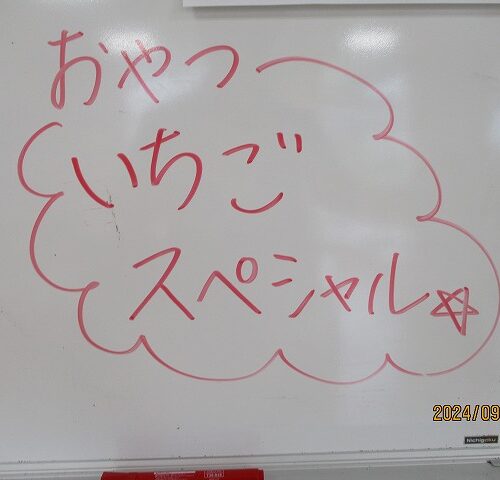 おやつ
いちご
スペシャル☆
2024/09
Nichigaku